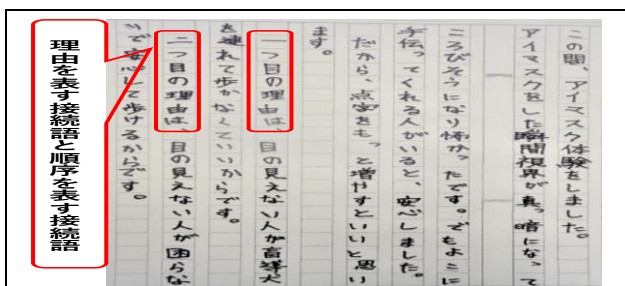 この間、アイマスク体験をしました。
アイマスクをした瞬間視界が真っ暗になって
ころびそうになり怖かったです。でもよこに
手伝ってくれる人がいると、安心しました。
だから、点字をもっと増やすといいと思い
ます。
一つ目の理由は、目の見えない人が盲導犬
を連れて歩かなくていいからです。
二つ目の理由は、目の見えない人が困らな
いで安心して歩けるからです。
理由を表す接続語と順序を表す接続語